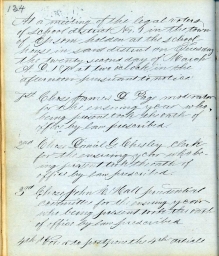 134
At a meeting of the legal voters
of school district No. 1 in the town
of Epsom holden at the school
house in said district on Tuesday
the twenty second day of March
at two o'clock in the
afternoon pursuant to notice
1st Chose James D. moderator
for the ensuing year who
being present took the oath of
office by law prescribed
2nd Chose Daniel C. Chesley, Clerk
for the ensuing year who be-
ing present took the oath of
office by law prescribed
3rd Chose John R. Hall prudential
committee for the ensuing year
who being present took the oath
of office by law prescribed
4th Voted to postpone the 4th article